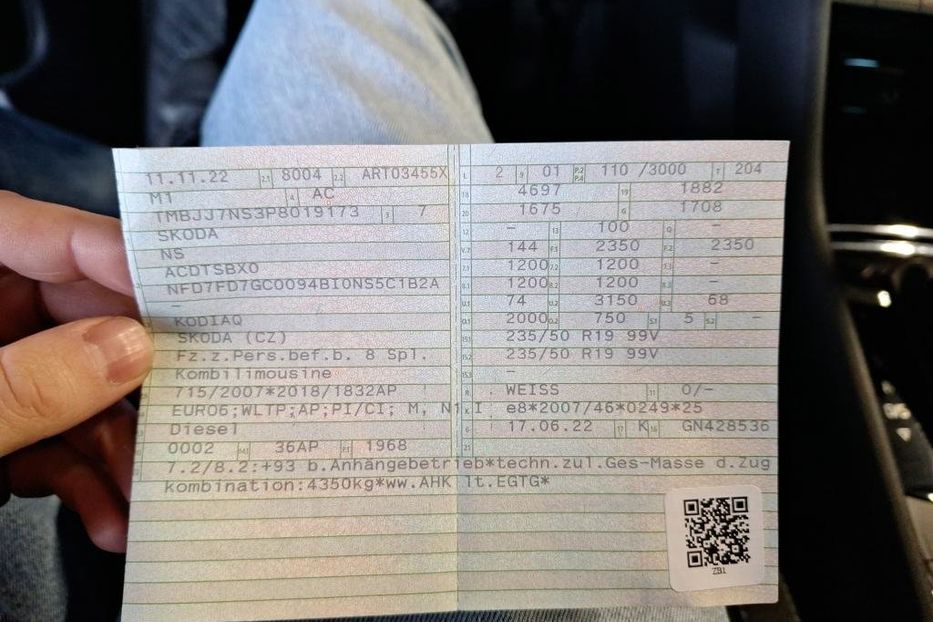 11.11.22 2.1 8004 2.2 ART03455X
M1 4 AC
TMBJJ7NS3P8019173 3 7
SKODA
NS
ACDTSBX0
NFD7FD7GC0094BI0NS5C1B2A
–
KODIAQ
SKODA (CZ)
Fz.z.Pers.bef.b. 8 Spl.
Kombilimousine
715/2007*2018/1832AP
EURO6;WLTP;AP;PI/CI; M, N1 I
Diesel
0002 36AP 1968
L 2 9 01 P.2 P.4 110 /3000 T 204
18 4697 19 1882
20 1675 G 1708
12 – 13 100 Q –
V.7 144 F.1 2350 F.2 2350
7.1 1200 7.2 1200 7.3 –
8.1 1200 8.2 1200 8.3 –
U.1 74 U.2 3150 U.3 68
O.1 2000 O.2 750 S.1 5 S.2 –
15.1 235/50 R19 99V
15.2 235/50 R19 99V
15.3 –
R WEISS 11 0/–
K e8*2007/46*0249*25
6 17.06.22 17 K 16 GN428536
21
7.2/8.2:+93 b.Anhängebetrieb*techn.zul.Ges-Masse d.Zug
kombination:4350kg*ww.AHK lt.EGTG*
ZB1